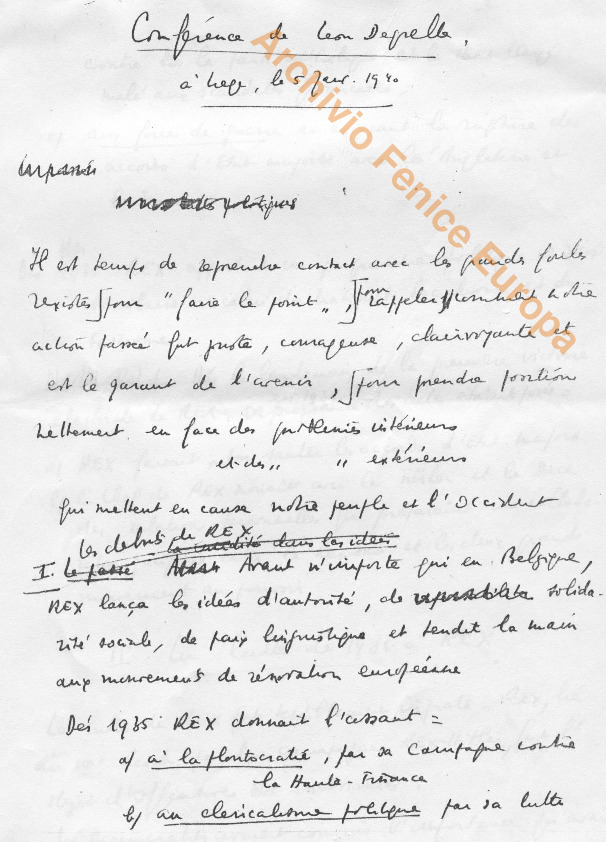 Conférence de Leon Degrelle,
à Liege, le 5 Janv. 1940
Archivio Fenice Europa
politiques
Il est temps de reprendre contact avec les grandes foules
rexistes [pour "faire le point", [pour rappeler comment notre
action passée fut juste, courageuse, clairvoyante et
est le garant de l'avenir, [pour prendre position
nettement en face des problèmes intérieurs
et des " " extérieurs
qui mettent en cause notre peuple et l'Occident
les debuts de REX
la dans les idées
I. le passé Avant n'importe qui en Belgique,
REX lança les idées d'autorité, de solida-
rité sociale, de paix linguistique et tendit la main
aux mouvements de rénovation européenne
Dés 1935 REX donnait l'assaut =
a) à la ploutocratie, par sa campagne contre
la Haute-Finance
b) au clericalisme politique par sa lutte